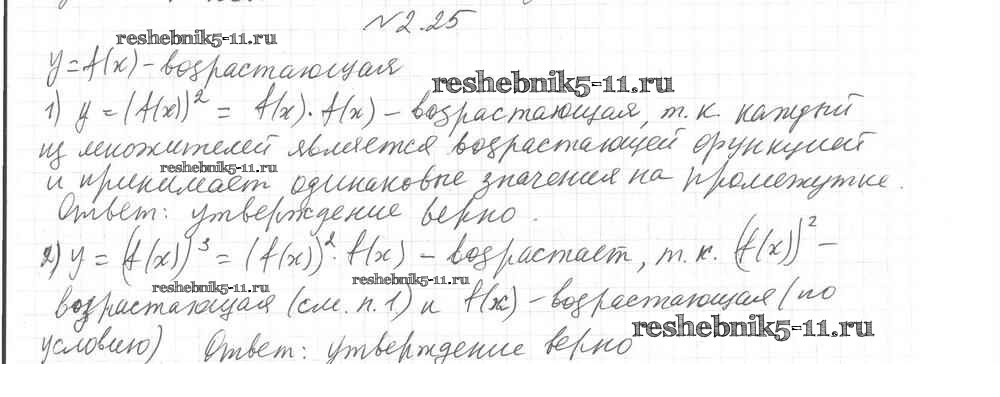 №2.25
reshebnik5-11.ru
y=f(x) – возрастающая
reshebnik5-11.ru
1) y = (f(x))² = f(x)·f(x) – возрастающая, т.к. каждый
из множителей является возрастающей функцией
reshebnik5-11.ru
и принимает одинаковые значения на промежутке.
Ответ: утверждение верно.
2) y = (f(x))³ = (f(x))²·f(x) – возрастает, т.к. (f(x))² –
reshebnik5-11.ru
reshebnik5-11.ru
возрастающая (см. п.1) и f(x) – возрастающая (по
reshebnik5-11.ru
условию) Ответ: утверждение верно